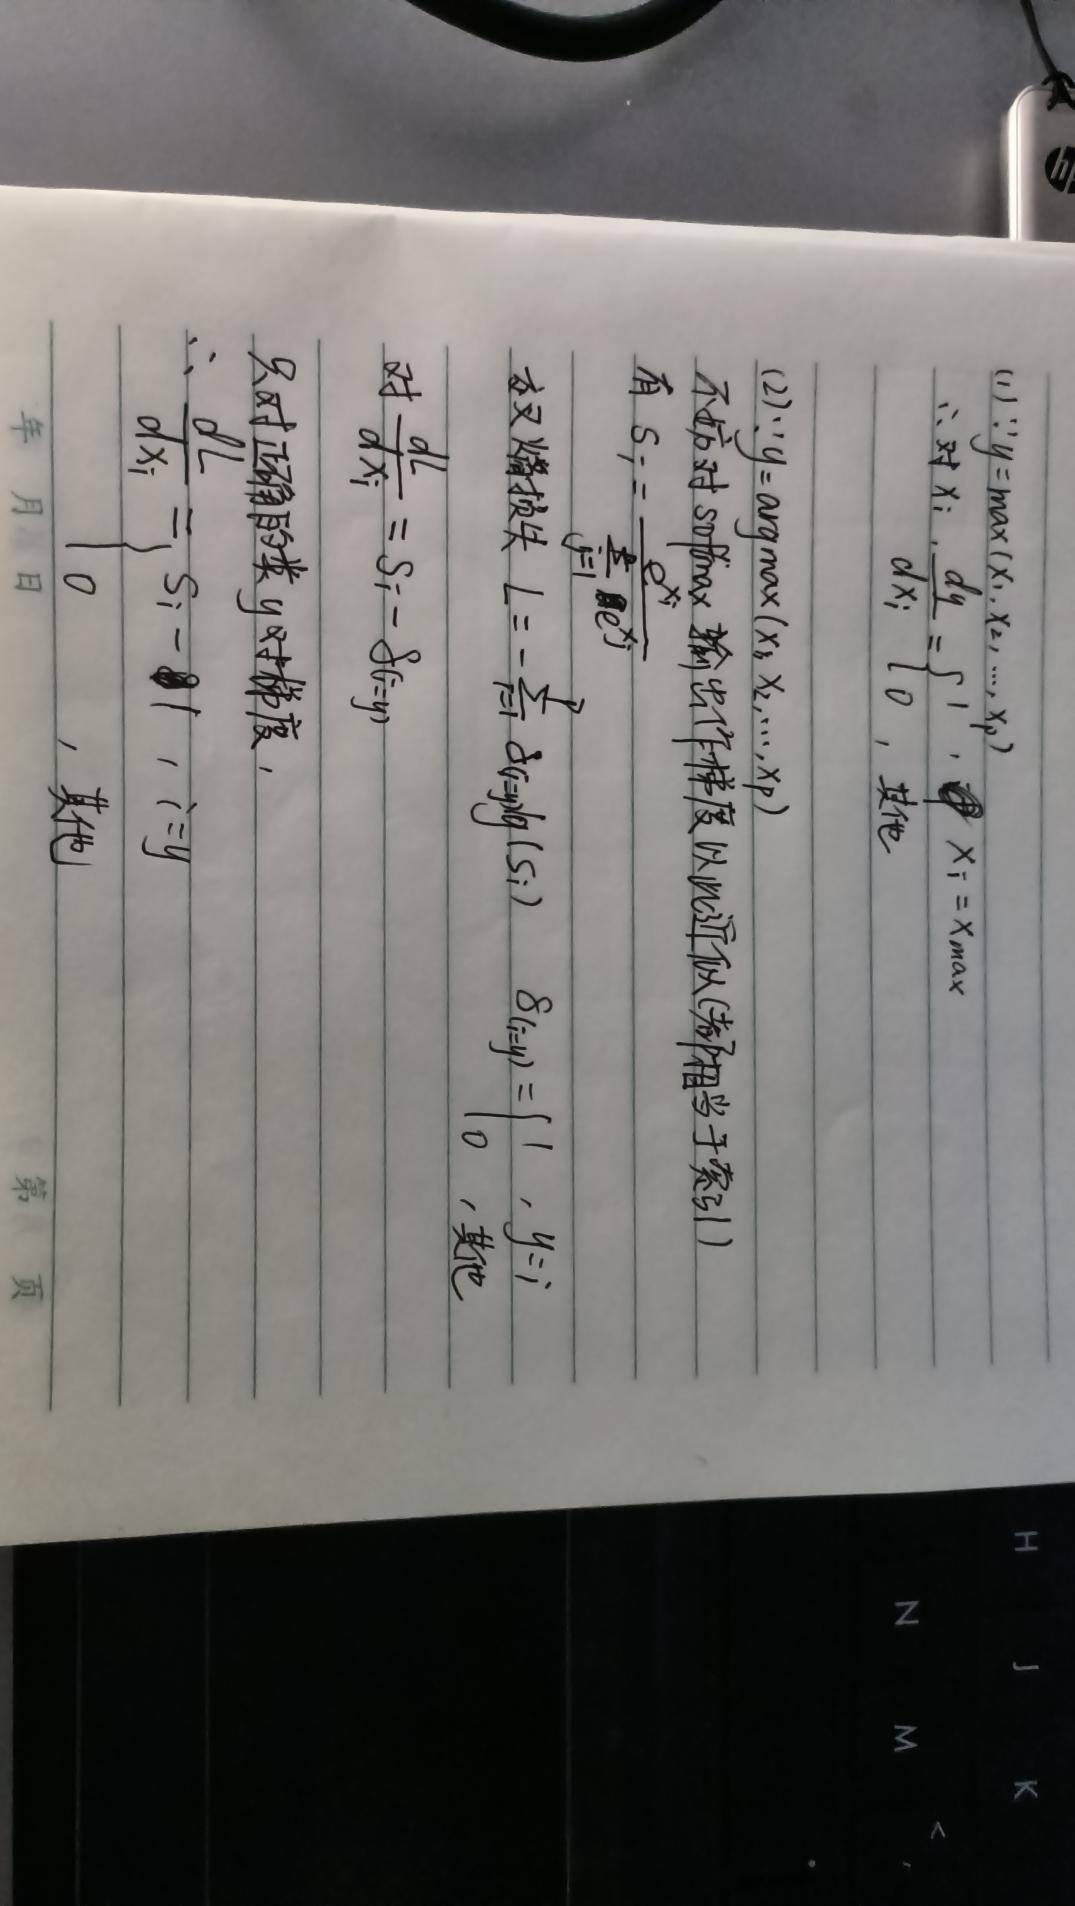 (1) ∵ y = max(x₁, x₂, ..., xₚ)
∴ 对 xᵢ, dy/dxᵢ = { 1, xᵢ = xmax
0, 其他
(2) ∵ y = argmax(x₁, x₂, ..., xₚ)
不妨对 softmax 输出作梯度以此近似(都相当于索引)
有 Sᵢ = e^xᵢ / Σ e^xⱼ
交叉熵损失 L = -Σᵢ₌₁ᵖ δ(i=y) lg(Sᵢ) δ(i=y) = { 1, y=i
0, 其他
对 dL/dxᵢ = Sᵢ - δ(i=y)
只对正确的类 y 对梯度,
∴ dL/dxᵢ = { Sᵢ - 1, i=y
0, 其他
年 月 日 第 页
hp
H J K
N M <